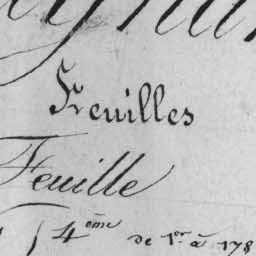 Feuilles
Feuille
4ème de 1er à 178